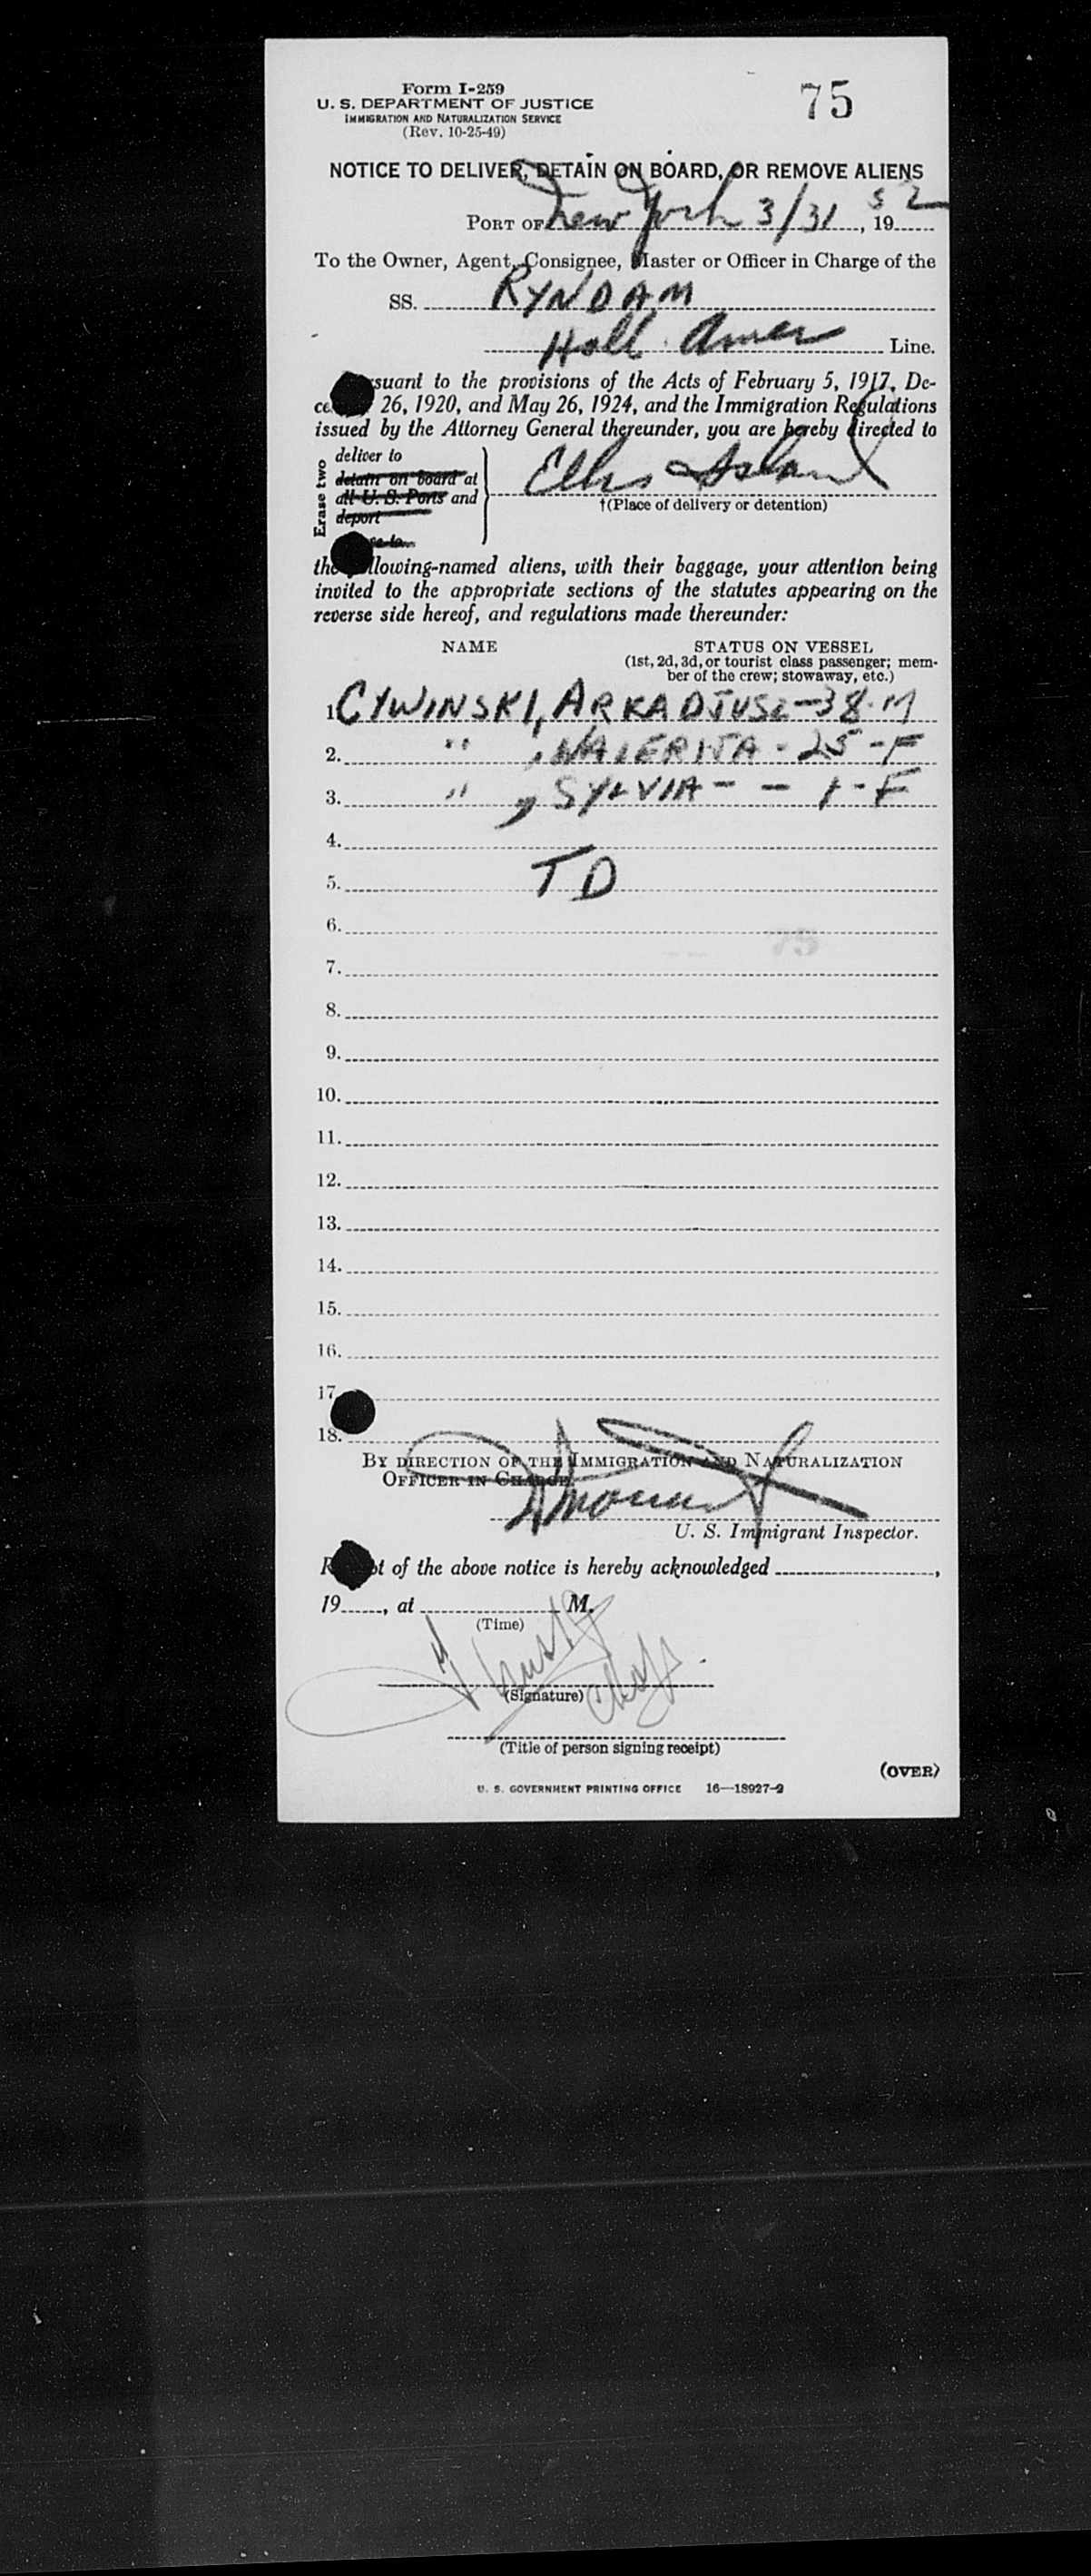 Form I-259
75
U. S. DEPARTMENT OF JUSTICE
IMMIGRATION AND NATURALIZATION SERVICE
(Rev. 10-25-49)
NOTICE TO DELIVER, DETAIN ON BOARD, OR REMOVE ALIENS
PORT OF New York 3/31, 1952
To the Owner, Agent, Consignee, Master or Officer in Charge of the
SS. RYNDAM
Holl. Amer Line.
suant to the provisions of the Acts of February 5, 1917, De-
ce 26, 1920, and May 26, 1924, and the Immigration Regulations
issued by the Attorney General thereunder, you are hereby directed to
Erase two
deliver to
detain on board at
all U. S. Ports and
deport
Ellis Island
†(Place of delivery or detention)
the lowing-named aliens, with their baggage, your attention being
invited to the appropriate sections of the statutes appearing on the
reverse side hereof, and regulations made thereunder:
NAME STATUS ON VESSEL
(1st, 2d, 3d, or tourist class passenger; mem-
ber of the crew; stowaway, etc.)
1 CYWINSKI, ARKADJUSZ - 38 - M
2. " , WALERIJA - 25 - F
3. " , SYLVIA - - 1 - F
4.
5. TD
6.
75
7.
8.
9.
10.
11.
12.
13.
14.
15.
16.
17
18.
BY DIRECTION OF THE IMMIGRATION AND NATURALIZATION
OFFICER IN CHARGE
U. S. Immigrant Inspector.
R t of the above notice is hereby acknowledged ,
19 , at M.
(Time)
(Signature)
(Title of person signing receipt)
(OVER)
U. S. GOVERNMENT PRINTING OFFICE 16—18927-2